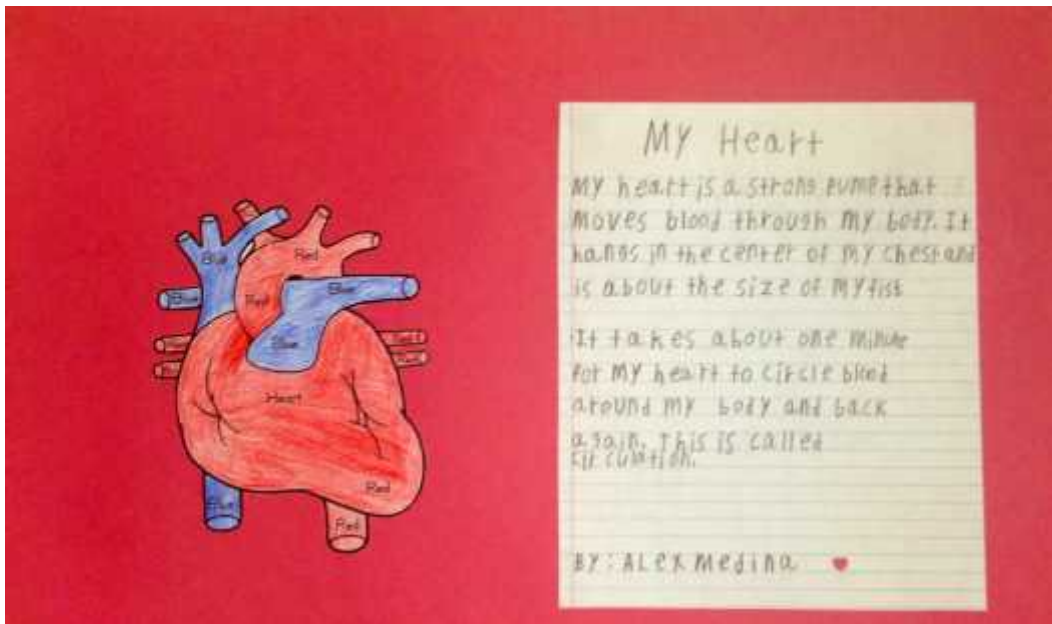 Blue
Red
Blue
Blue
Red
Blue
Red
Red
Heart
Red
Blue
Red
My Heart
My heart is a strong pump that
moves blood through my body. It
hangs in the center of my chest and
is about the size of my fist
It takes about one minute
for my heart to circle blood
around my body and back
again. This is called
circulation.
BY: ALex Medina